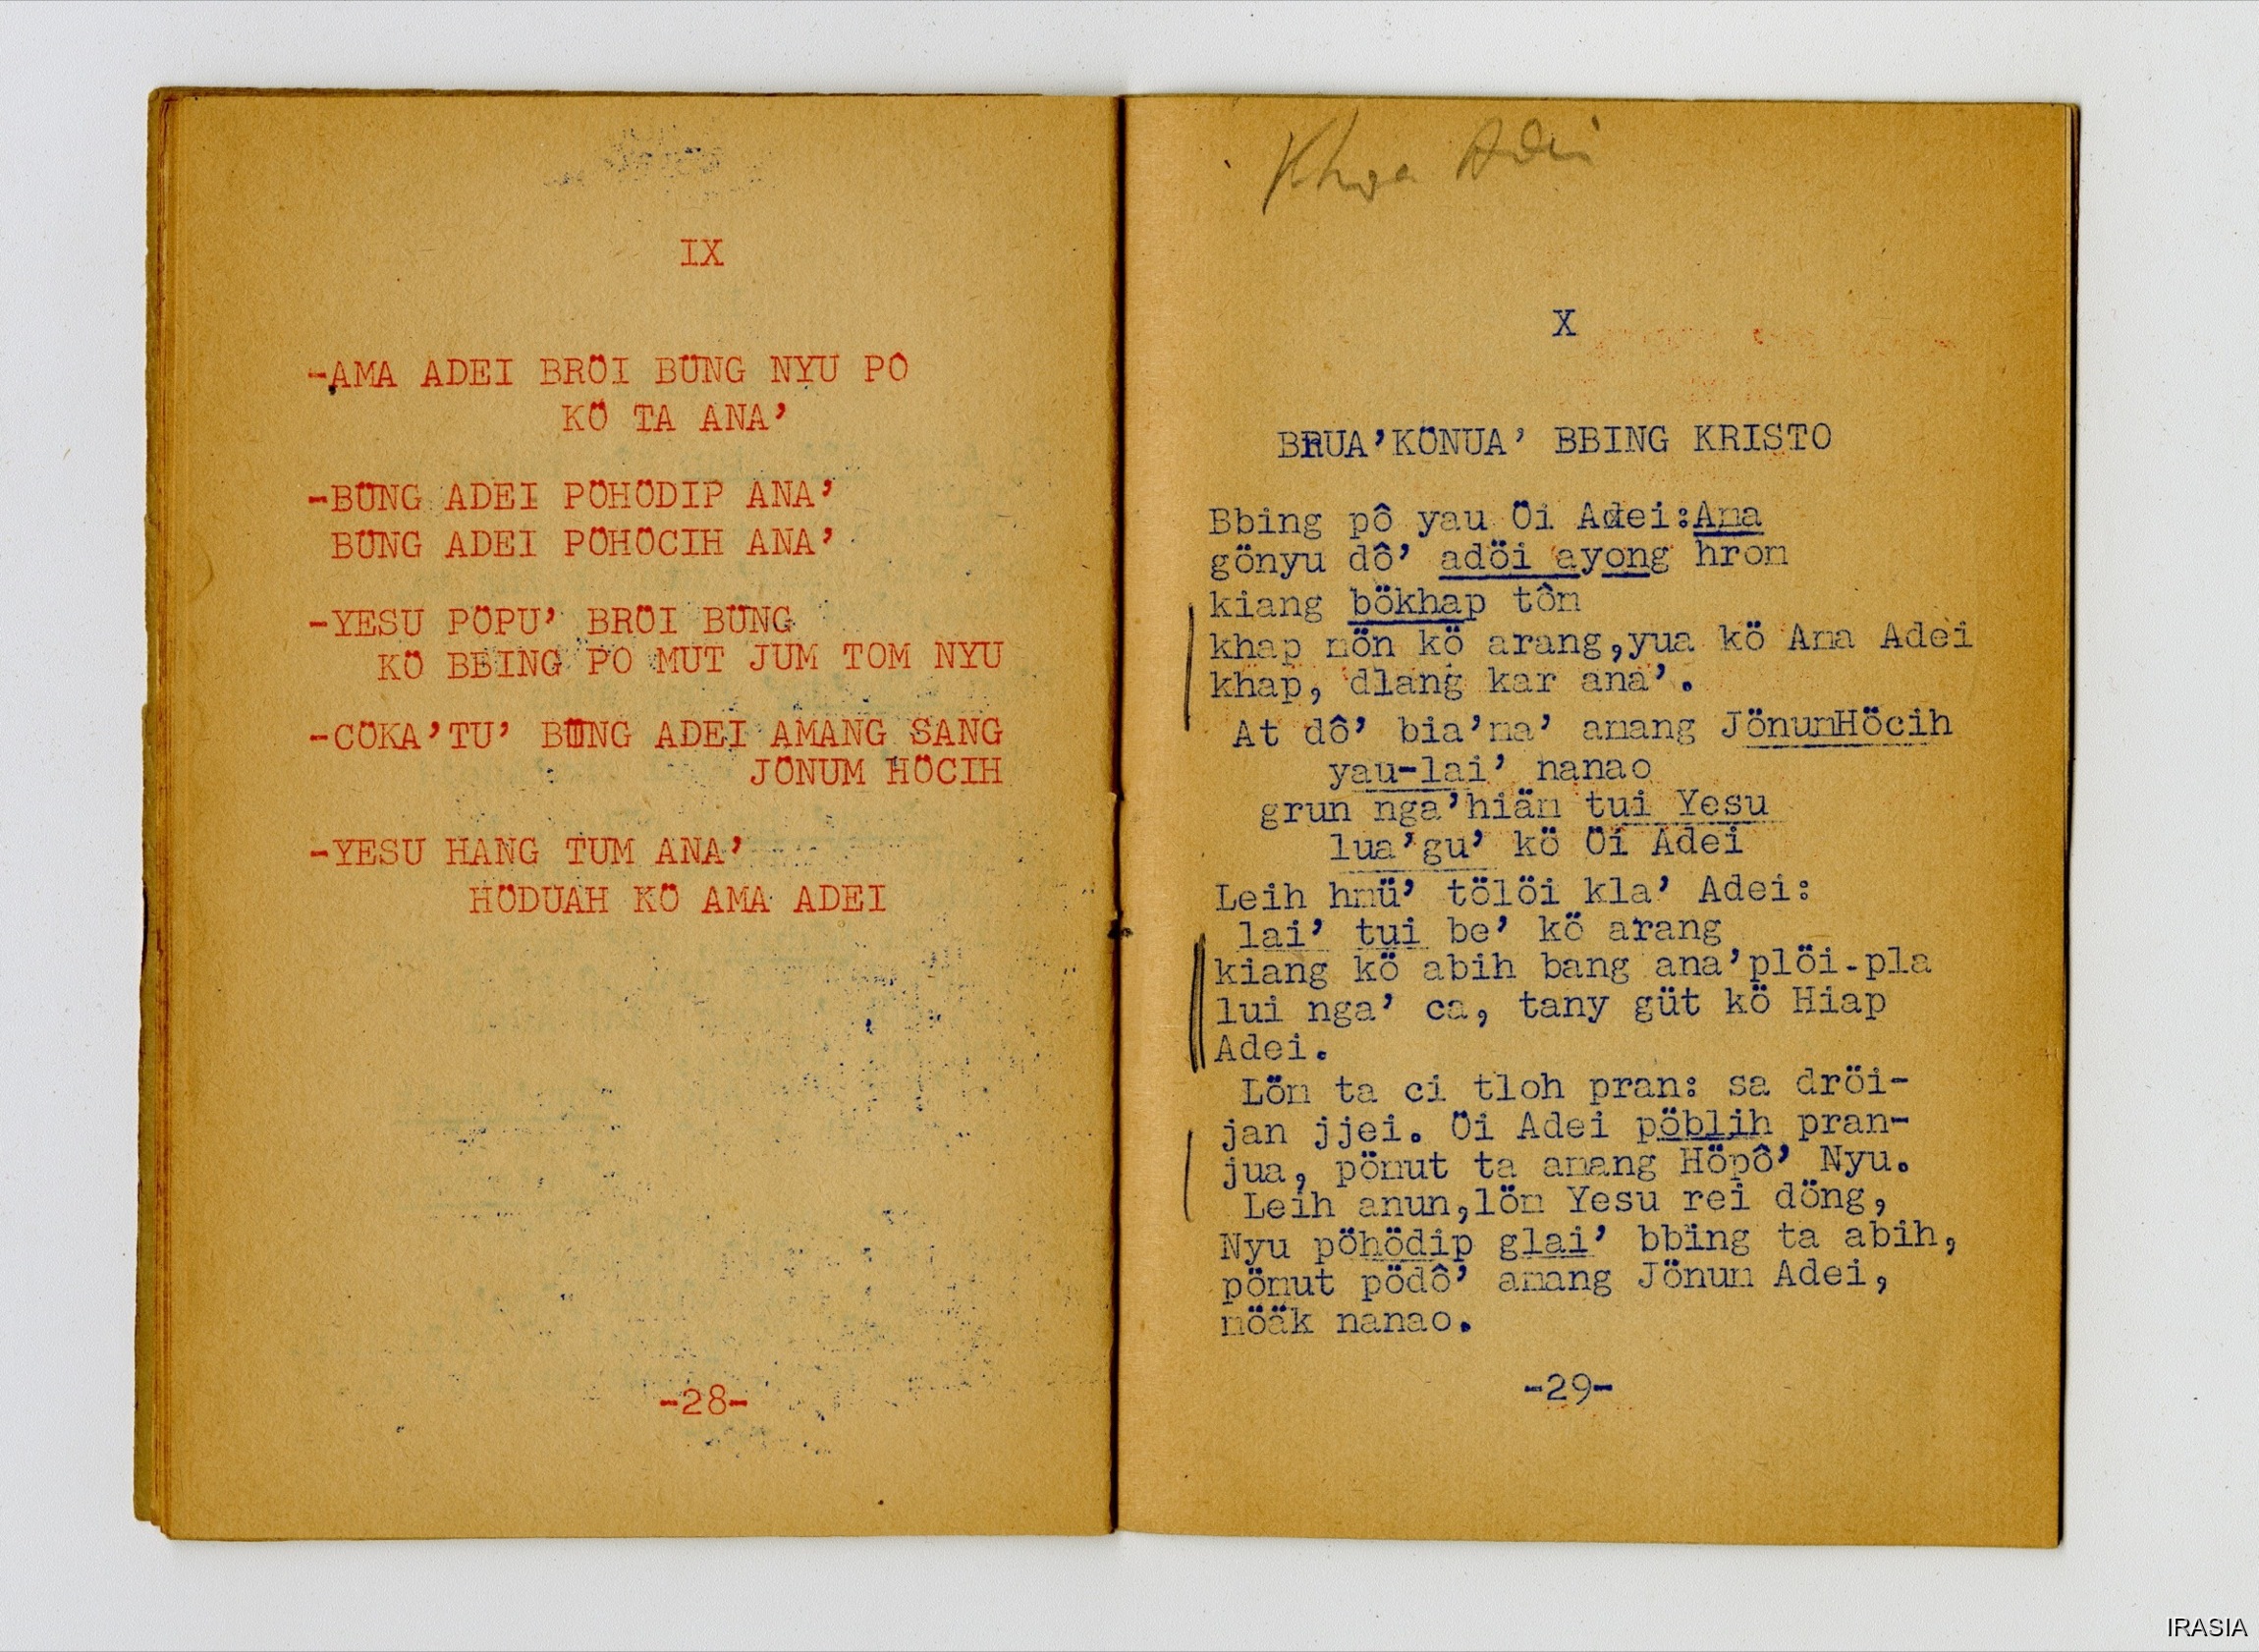 IX
-AMA ADEI BRÖI BÜNG NYU PÔ
KÖ TA ANA’
-BÜNG ADEI PÖHÖDIP ANA’
BÜNG ADEI PÖHÖCIH ANA’
-YESU PÖPU’ BRÖI BÜNG
KÖ BBING PO MUT JUM TOM NYU
-CÖKA’TU’ BÜNG ADEI AMANG SANG
JÖNUM HÖCIH
-YESU HANG TUM ANA’
HÖDUAH KÖ AMA ADEI
-28-
Khoa Adei
X
BRUA’KÖNUA’ BBING KRISTO
Bbing pô yau Öi Adei:Ama
gönyu dô’ adöi ayong hrom
kiang bökhap tôm
khap mön kö arang,yua kö Ama Adei
khap, dlang kar ana’.
At dô’ bia’ma’ amang JönumHöcih
yau-lai’ nanao
grun nga’hiäm tui Yesu
lua’gu’ kö Öi Adei
Leih hmü’ tölöi kla’ Adei:
lai’ tui be’ kö arang
kiang kö abih bang ana’plöi-pla
lui nga’ ca, tany güt kö Hiap
Adei.
Löm ta ci tloh pran: sa dröi-
jan jjei. Öi Adei pöblih pran-
jua, pömut ta amang Höpô’ Nyu.
Leih anun,löm Yesu rei döng,
Nyu pöhödip glai’ bbing ta abih,
pömut pödô’ amang Jönum Adei,
möäk nanao.
-29-
IRASIA